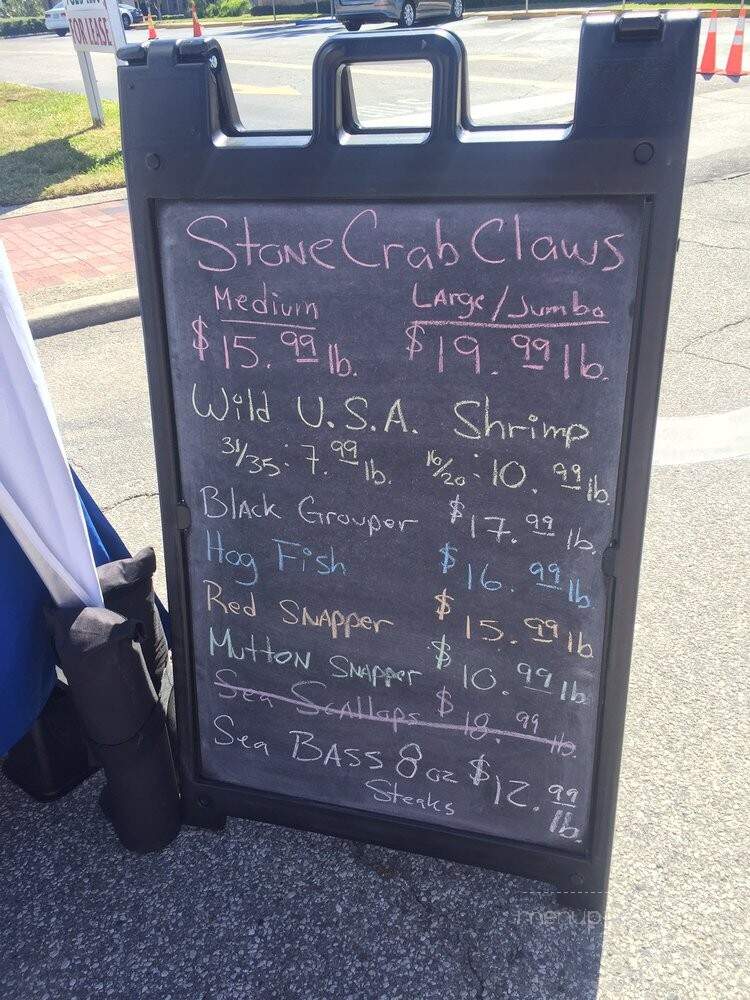 FOR LEASE
Stone Crab Claws
Medium Large/Jumbo
$15.99 lb. $19.99 lb.
Wild U.S.A. Shrimp
31/35: 7.99 lb. 16/20: 10.99 lb.
Black Grouper $17.99 lb.
Hog Fish $16.99 lb
Red Snapper $15.99 lb
Mutton Snapper $10.99 lb
Sea Scallops $18.99 lb.
Sea Bass 8 oz $12.99 lb.
Steaks
menup